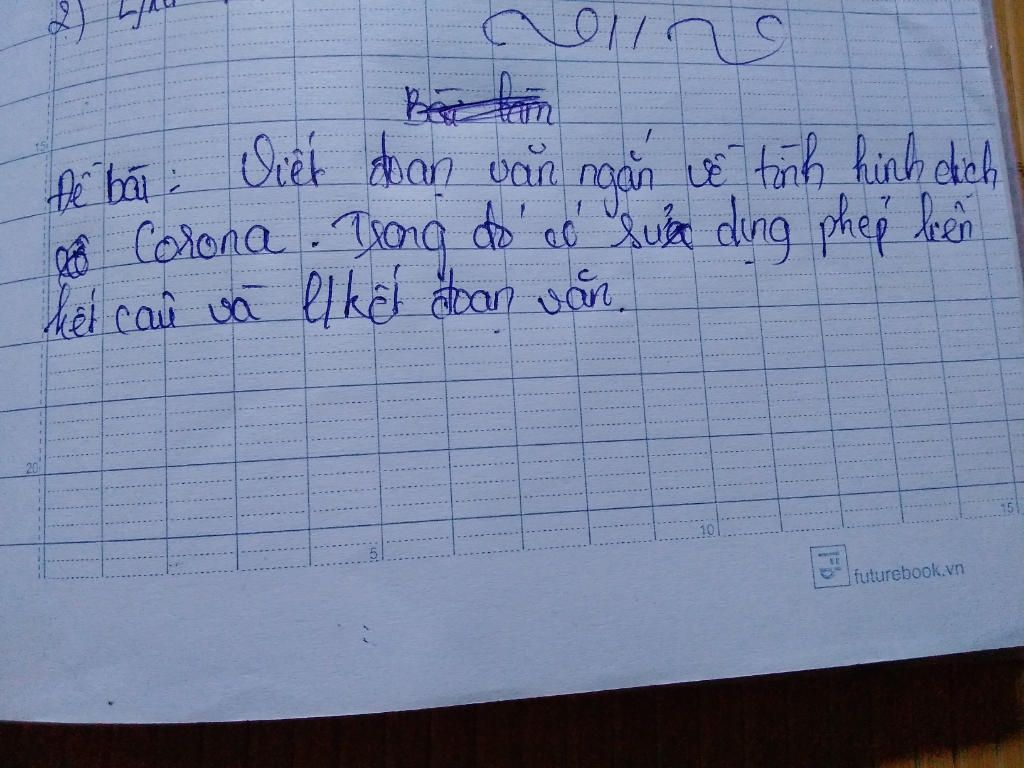 2)
15
Đề bài: Viết đoạn văn ngắn về tình hình dịch
Corona. Trong đó có sử dụng phép liên
kết câu và l/kết đoạn văn.
20
5
10
15
futurebook.vn